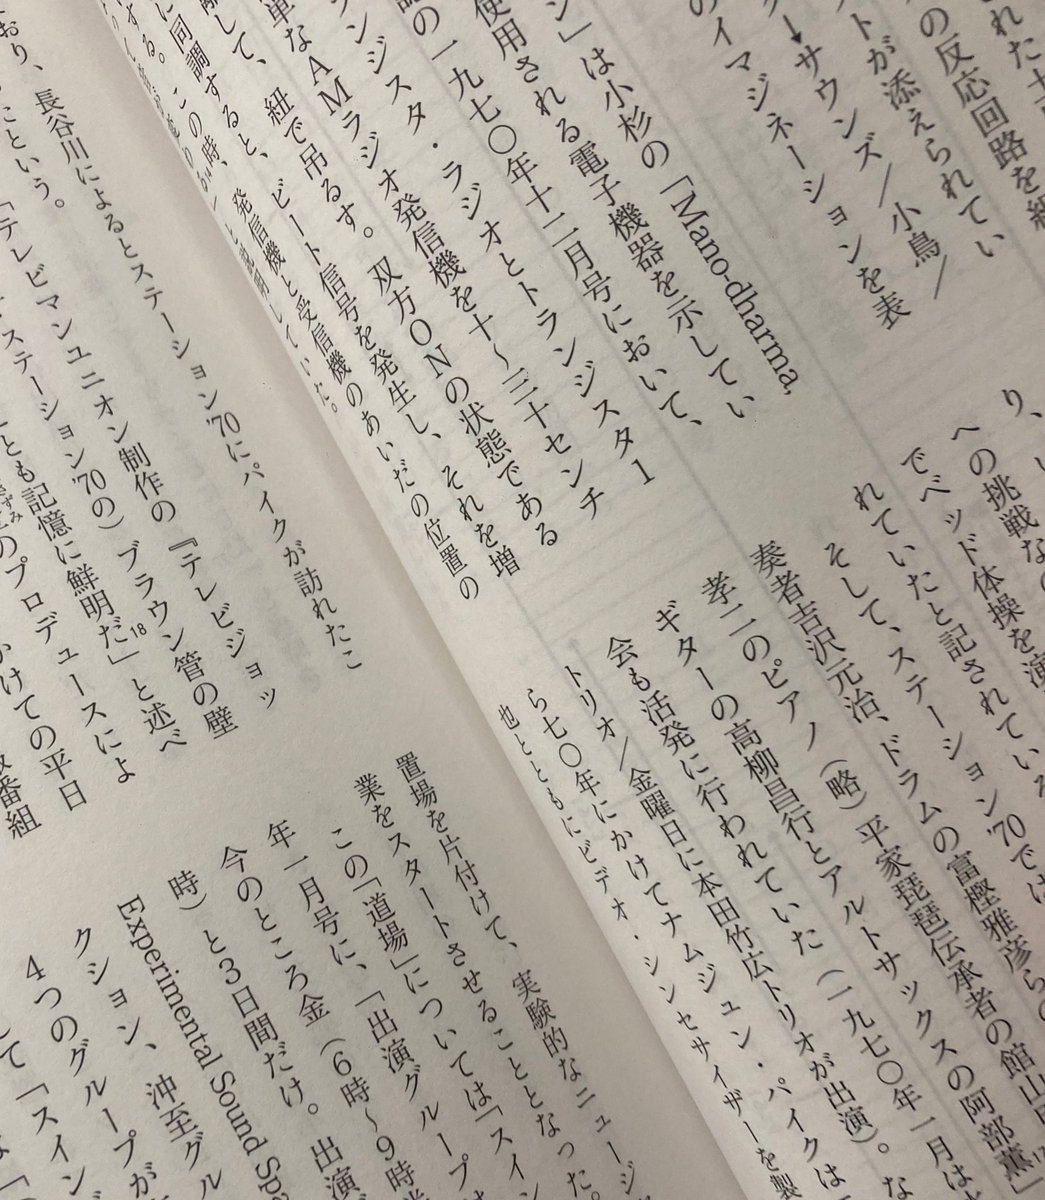 れた十
の反応回路を組
トが添えられてい
ター→サウンズ/小鳥/
のイマジネーションを表
ン」は小杉の「Mano-dharma,
使用される電子機器を示してい
の一九七〇年十二月号において、
ンジスタ・ラジオとトランジスター1
単なAMラジオ発信機を十〜三十センチ
して、紐で吊るす。双方ONの状態である
に同調すると、ビート信号を発生し、それを増
すね。この時、発信機と受信機のあいだの位置の
に説明していた。
り、
への挑戦な
でベッド体操を演
れていたと記されている
そして、ステーション'70では
奏者吉沢元治、ドラムの富樫雅彦らの
孝二のピアノ（略）平家琵琶伝承者の館山
ギターの高柳昌行とアルトサックスの阿部薫」17
会も活発に行われていた（一九七〇年一月は
トリオ/金曜日に本田竹広トリオが出演）。な
ら七〇年にかけてナムジュン・パイクは
也とともにビデオ・シンセサイザーを製
おり、長谷川によるとステーション'70にパイクが訪れたこ
たという。
「テレビマンユニオン制作の『テレビジョッ
ステーション'70の）ブラウン管の壁
とも記憶に鮮明だ」18と述べ
のプロデュースによ
かけての平日
番組
置場を片付けて、実験的なニュージ
業をスタートさせることとなった。
この「道場」については「スイン
年一月号に、「出演グループ
今のところ金（6時〜9時半
時）と3日間だけ。出演
Experimental Sound Spa
クション、沖至グル
4つのグループが
して「スイング